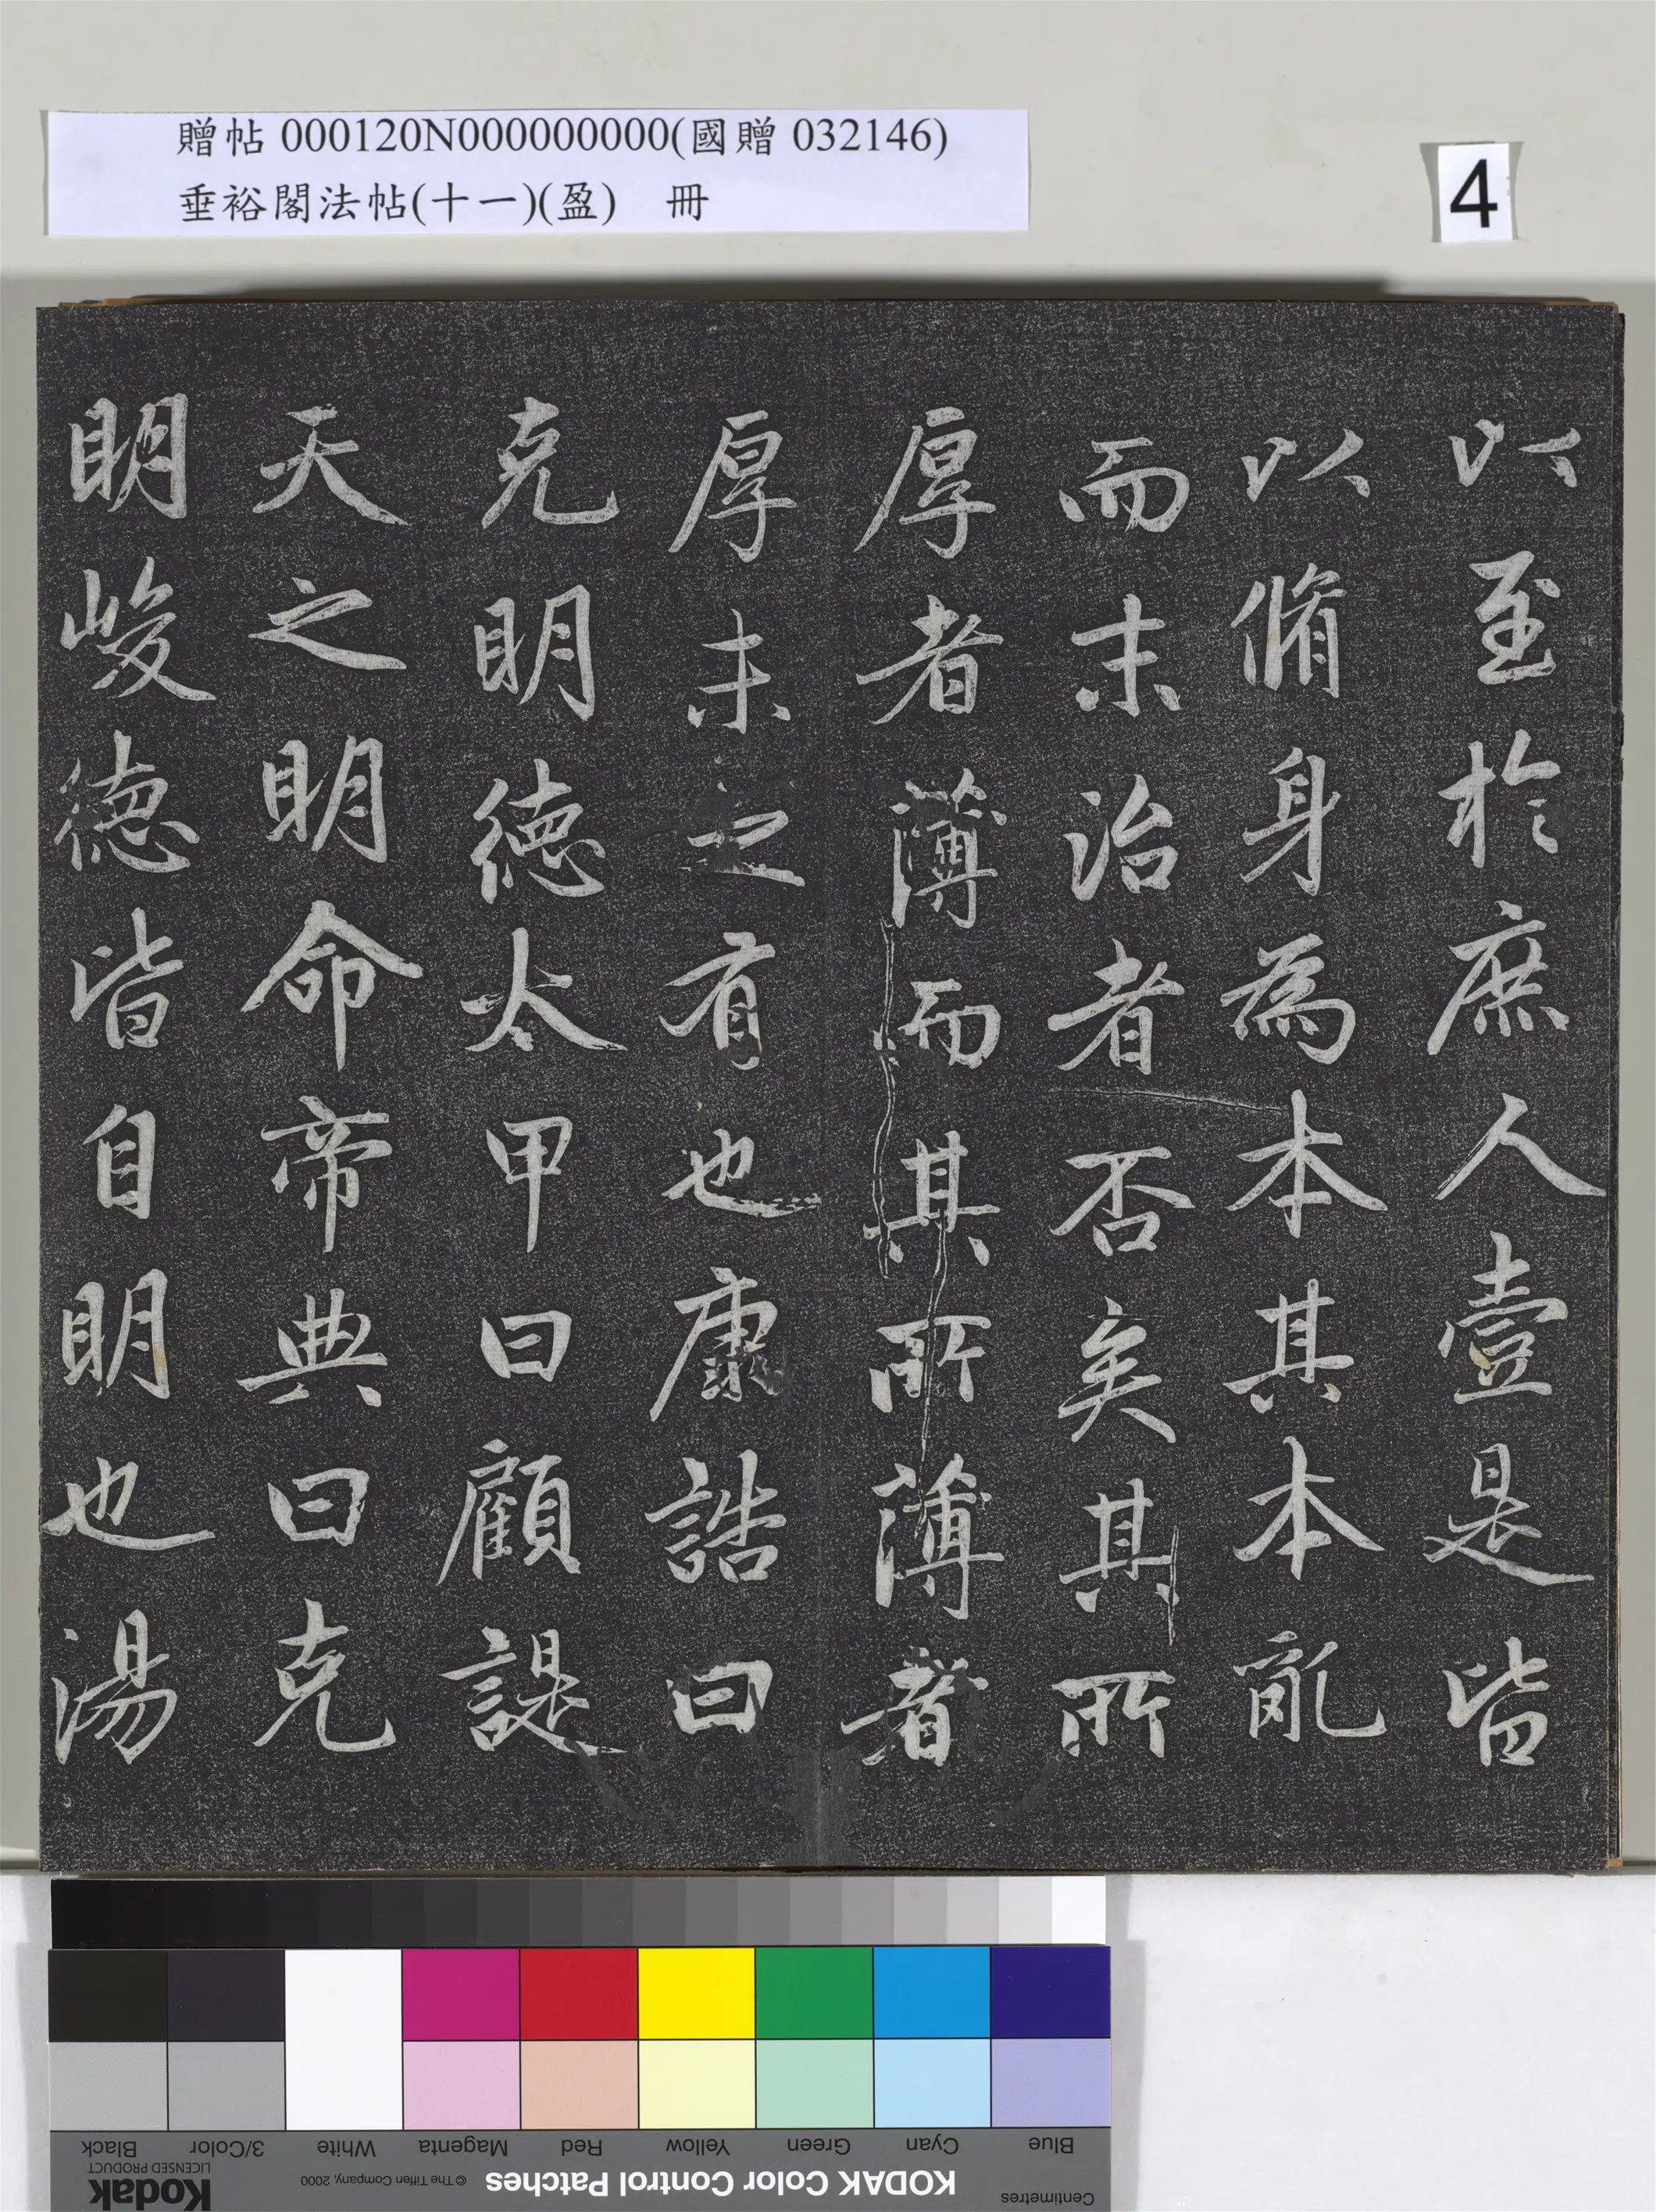 贈帖 000120N000000000(國贈 032146)
垂裕閣法帖(十一)(盈) 冊
4
以至於庶人壹是皆
以脩身為本其本亂
而末治者否矣其所
厚者薄而其所薄者
厚未之有也康誥曰
克明德太甲曰顧諟
天之明命帝典曰克
明峻德皆自明也湯
Black 3/Color White Magenta Red Yellow Green Cyan Blue
Kodak LICENSED PRODUCT © The Tiffen Company, 2000 KODAK Color Control Patches Centimetres